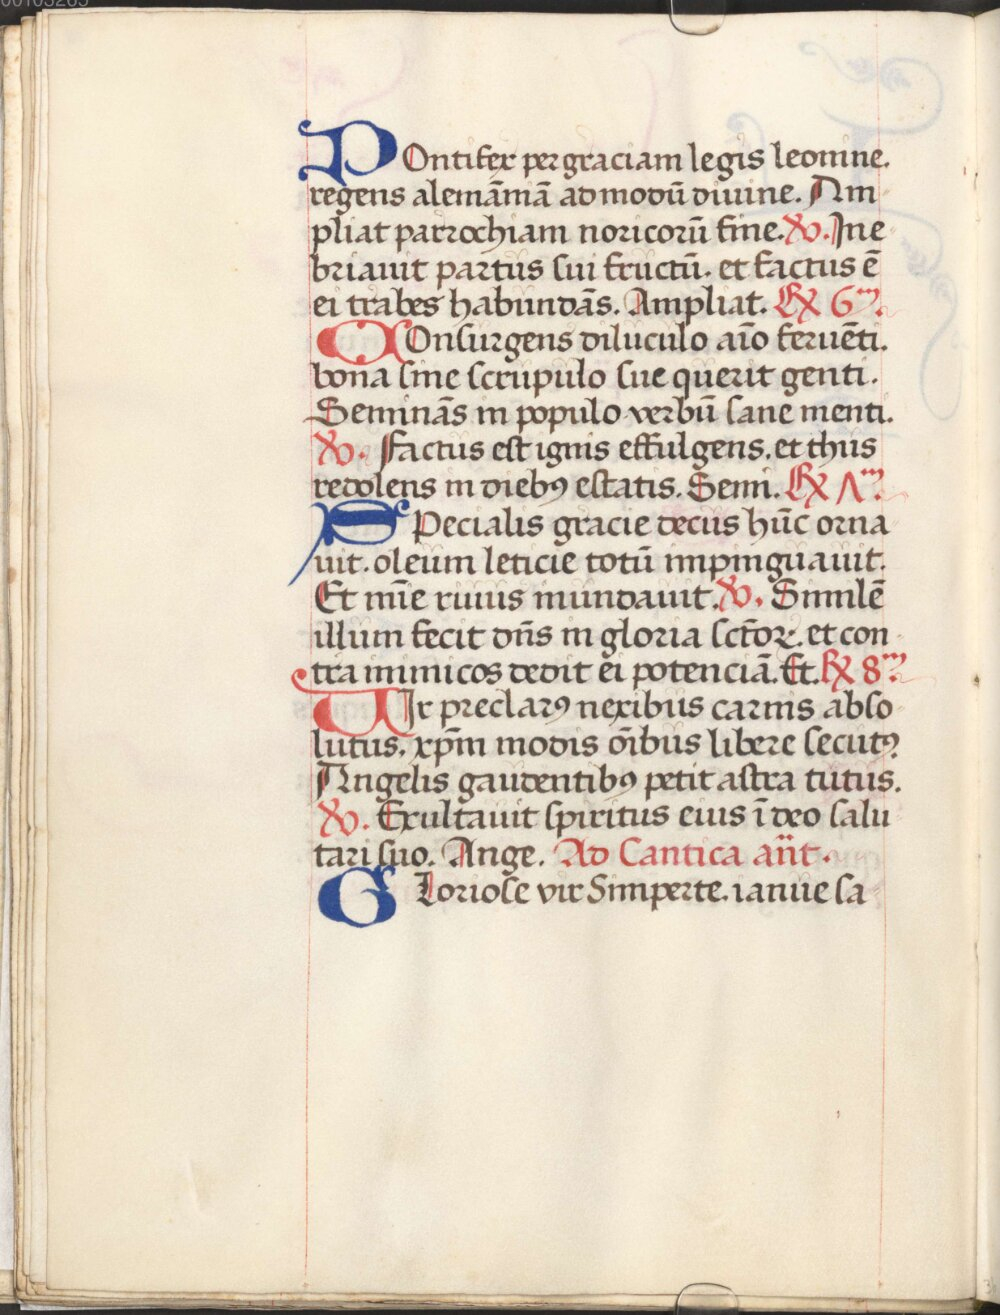 00103265
POntifex per graciam legis leonine.
regens alemāniā ad modū diuine. Am
pliat parrochiam noricorū fine. V. Ine
briauit partus sui fructū. et factus ē
ei trabes habundās. Ampliat. Rx 6m.
COnsurgens diluculo aīo feruēti.
bona sine scrupulo sue querit genti.
Seminās in populo verbū sane menti.
V. Factus est ignis effulgens. et thus
redolens in diebꝯ estatis. Semi. Rx Λm.
SPecialis gracie decus hūc orna
uit. oleum leticie totū impinguauit.
Et mīe riuus mundauit. V. Similē
illum fecit dn̄s in gloria sctoꝝ. et con
tra inimicos dedit ei potenciā. Et. Rx 8m.
VIr preclarꝯ nexibus carnis abso
lutus. xp̄m modis oībus libere secutꝯ
Angelis gaudentibꝯ petit astra tutus.
V. Exultauit spiritus eius ī deo salu
tari suo. Ange. Ad Cantica an̄t.
GLoriose vir Simperte. ianue sa